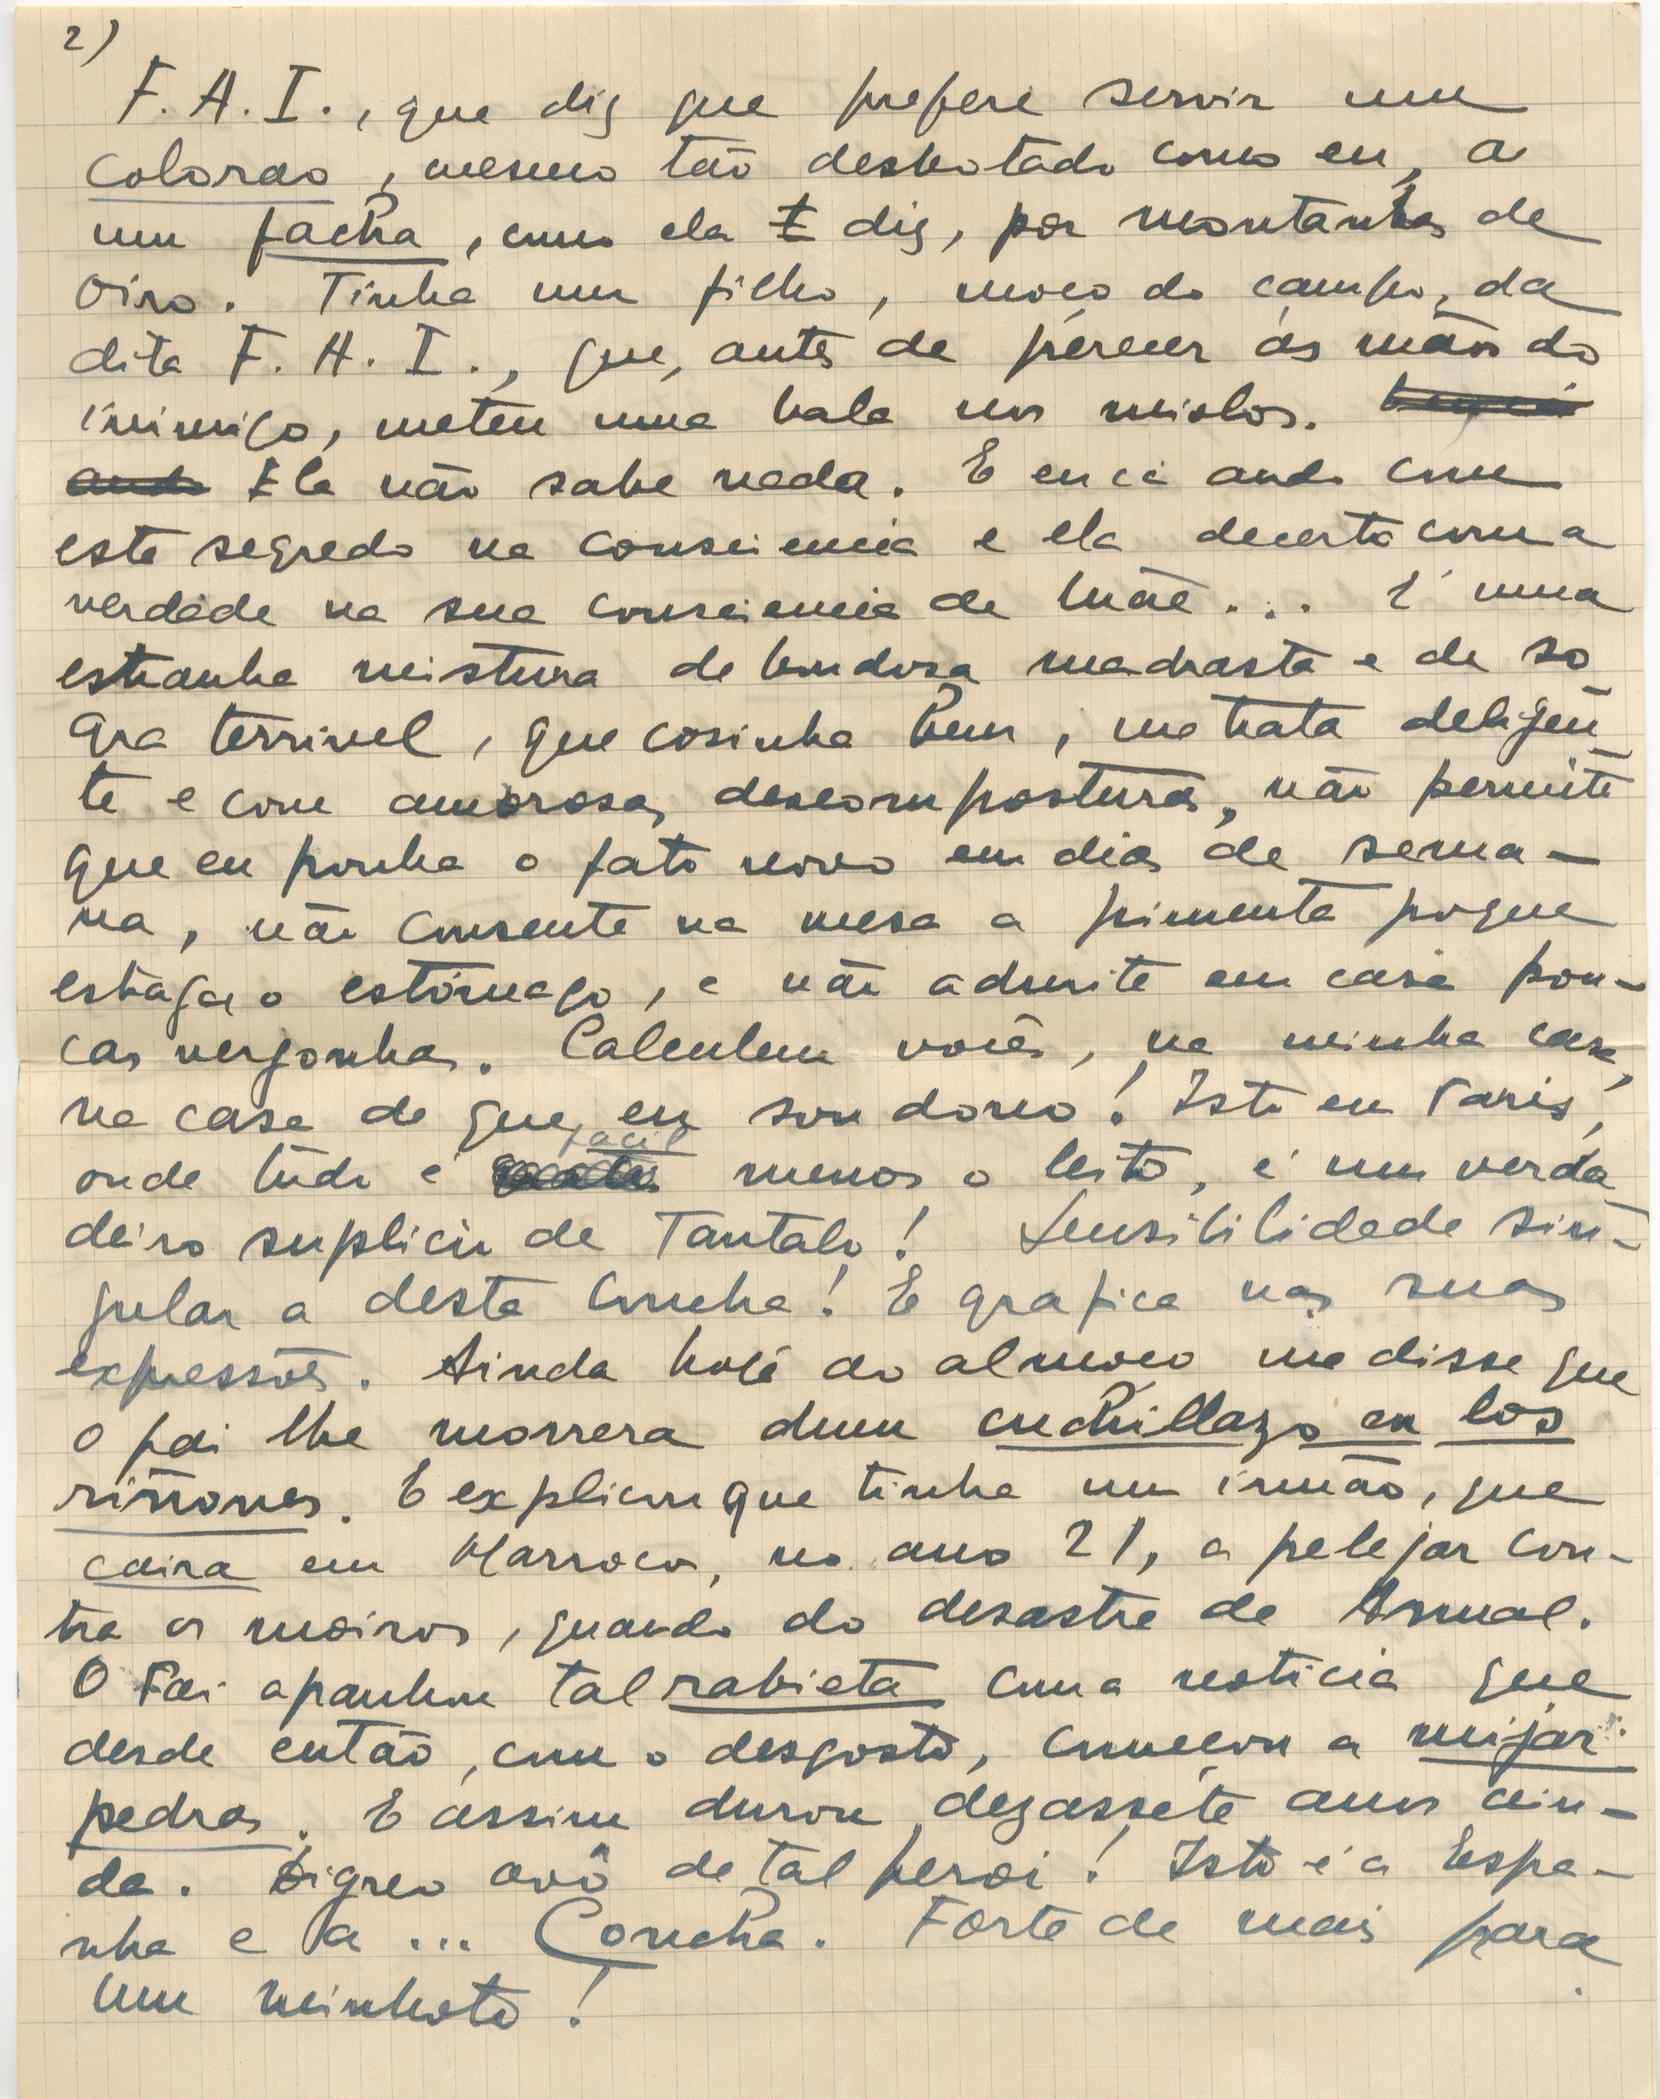 2)
F. A. I., que diz que prefere servir um
colorao, mesmo tão desbotado como eu, a
um facha, como ela diz, por montanhas de
oiro. Tinha um filho, moço do campo, da
dita F. A. I., que, antes de perecer ás mãos do
inimigo, meteu uma bala nos miolos.
Ela não sabe nada. E eu cá ando com
este segredo na consciencia e ela decerto com a
verdade na sua consciencia de Mãe... É uma
estranha mistura de bondosa madrasta e de so
gra terrivel, que cosinha bem, me trata deligen
te e com amorosas descomposturas, não permite
que eu ponha o fato novo em dias de sema-
na, não consente na mesa a pimenta poque
estraga o estômago, e não admite em casa pou-
cas vergonhas. Calculem vocês, na minha casa,
na casa de que eu sou dono! Isto em Paris,
onde tudo é facil menos o leito, é um verda
deiro suplicio de Tantalo! Sensibilidade sin-
gular a desta Concha! E grafica nas suas
expressões. Ainda hoje ao almoço me disse que
o pai lhe morrera dum cuchillazo en los
riñones. E explicou que tinha um irmão, que
caira em Marrocos, no ano 21, a pelejar con-
tra os moiros, quando do desastre de Annual.
O Pai apanhou tal rabieta com a noticia que
desde então, com o desgosto, começou a mijar
pedras. E assim durou dezassete anos ain-
da. Digno avô de tal heroi! Isto é a Espa-
nha e a ... Concha. Forte de mais para
um minhoto!